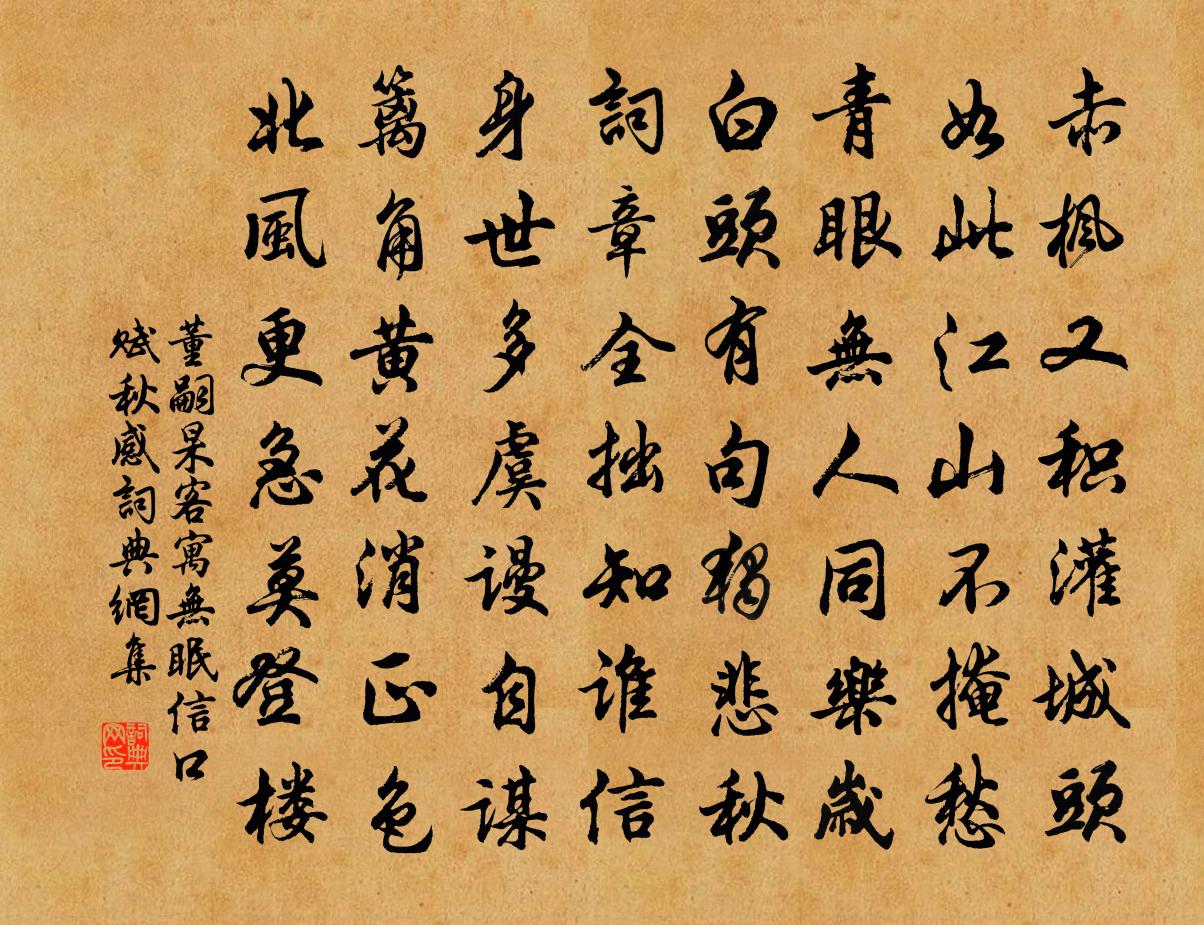 赤楓又积灌城頭
如此江山不掩愁
青眼無人同樂歲
白頭有句獨悲秋
詞章全拙知誰信
身世多虞謾自謀
籬角黄花消正色
北風更急莫登楼
董嗣杲客寓無眠信口
賦秋感詞典網集
詞典網印